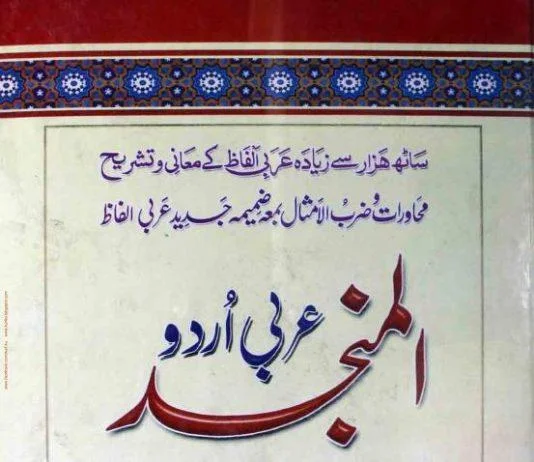 ساٹھ ہزار سے زیادہ عربی الفاظ کے معانی و تشریح
محاورات و ضرب الامثال بمعہ ضمیمہ جدید عربی الفاظ
المنجد
عربی اردو